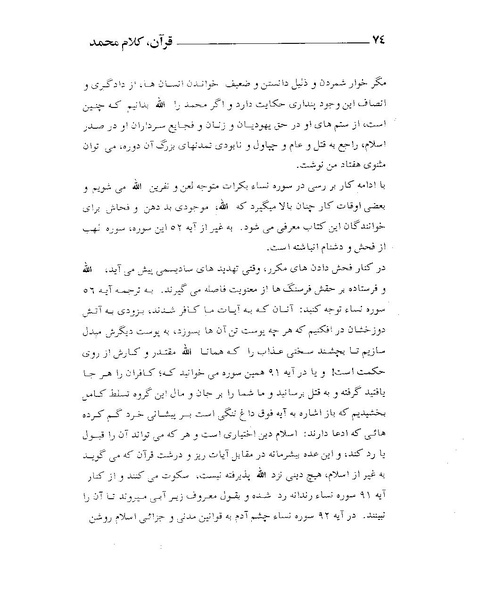 ۷٤ قرآن، کلام محمد
مگر خوار شمردن و ذلیل دانستن و ضعیف خواندن انسان ها، از دادگری و
انصاف این وجود پنداری حکایت دارد و اگر محمد را الله بدانیم که چنین
است، از ستم های او در حق یهودیان و زنان و فجایع سرداران او در صدر
اسلام، راجع به قتل و عام و چپاول و نابودی تمدنهای بزرگ آن دوره، می توان
مثنوی هفتاد من نوشت.
با ادامه کار بر رسی در سوره نساء بکرات متوجه لعن و نفرین الله می شویم و
بعضی اوقات کار چنان بالا میگیرد که الله، موجودی بد دهن و فحاش برای
خوانندگان این کتاب معرفی می شود. به غیر از آیه ۵۲ این سوره، سوره نهب
از فحش و دشنام انباشته است.
در کنار فحش دادن های مکرر، وقتی تهدید های سادیسمی پیش می آید، الله
و فرستاده بر حقش فرسنگ ها از معنویت فاصله می گیرند. به ترجمه آیه ۵۶
سوره نساء توجه کنید: آنان که به آیات ما کافر شدند، بزودی به آتش
دوزخشان در افکنیم که هر چه پوست تن آن ها بسوزد، به پوست دیگرش مبدل
سازیم تا بچشند سختی عذاب را که همانا الله مقتدر و کارش از روی
حکمت است! و یا در آیه ۹۱ همین سوره می خوانید که؛ کافران را هر جا
یافتید گرفته و به قتل برسانید و ما شما را بر جان و مال این گروه تسلط کامل
بخشیدیم که باز اشاره به آیه فوق داغ ننگی است بر پیشانی خرد گم کرده
هائی که ادعا دارند: اسلام دین اختیاری است و هر که می تواند آن را قبول و
یا رد کند، و این عده بیشرمانه در مقابل آیات ریز و درشت قرآن که می گوید
به غیر از اسلام، هیچ دینی نزد الله پذیرفته نیست، سکوت می کنند و از کنار
آیه ۹۱ سوره نساء رندانه رد شده و بقول معروف زیر آبی میروند تا آن را
نبینند. در آیه ۹۲ سوره نساء چشم آدم به قوانین مدنی و جزائی اسلام روشن